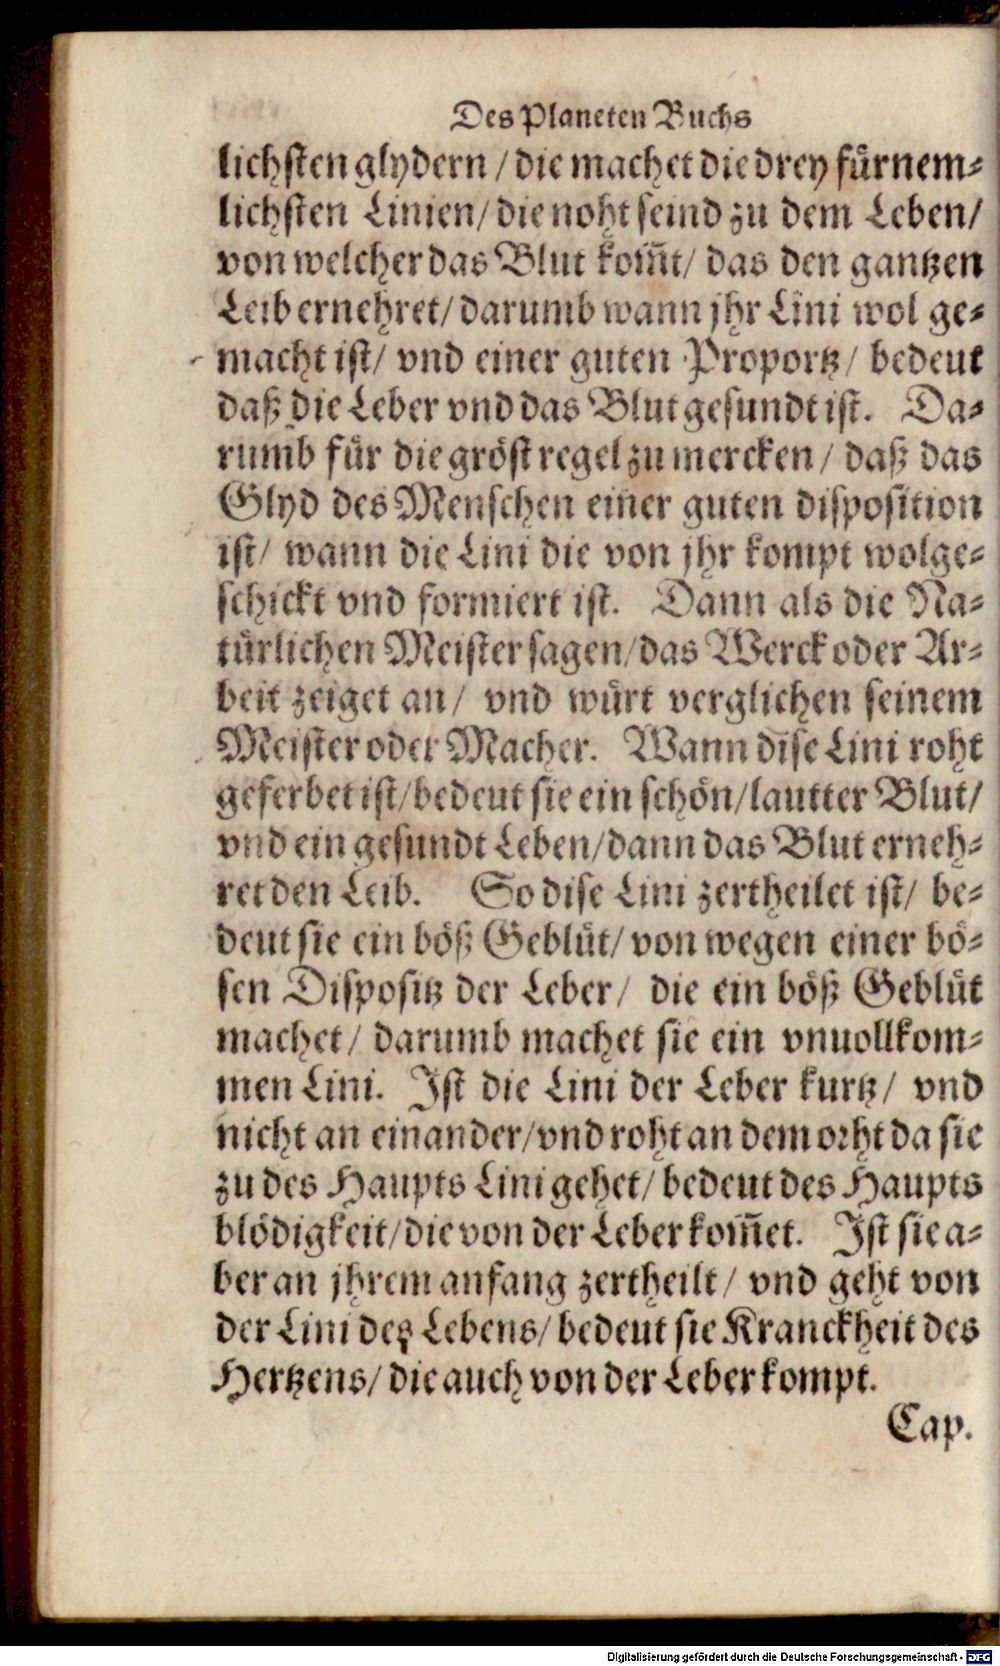 Des Planeten Buchs
lichsten glydern / die machet die drey fürnem-
lichsten Linien/ die noht seind zu dem Leben/
von welcher das Blut kom̃t/ das den gantzen
Leib ernehret/ darumb wann jhr Lini wol ge-
macht ist/ vnd einer guten Proportz/ bedeut
daß die Leber vnd das Blut gesundt ist. Da-
rumb für die gröst regel zu mercken / daß das
Glyd des Menschen einer guten disposition
ist/ wann die Lini die von jhr kompt wolge-
schickt vnd formiert ist. Dann als die Na-
türlichen Meister sagen/das Werck oder Ar-
beit zeiget an/ vnd würt verglichen seinem
Meister oder Macher. Wann dise Lini roht
geferbet ist/bedeut sie ein schön/lautter Blut/
vnd ein gesundt Leben/dann das Blut erneh-
ret den Leib. So dise Lini zertheilet ist/ be-
deut sie ein böß Geblüt/ von wegen einer bö-
sen Dispositz der Leber/ die ein böß Geblüt
machet/ darumb machet sie ein vnuollkom-
men Lini. Ist die Lini der Leber kurtz/ vnd
nicht an einander/vnd roht an dem orht da sie
zu des Haupts Lini gehet/ bedeut des Haupts
blödigkeit/die von der Leber kom̃et. Ist sie a-
ber an jhrem anfang zertheilt/ vnd geht von
der Lini deß Lebens/ bedeut sie Kranckheit des
Hertzens/ die auch von der Leber kompt.
Cap.
Digitalisierung gefördert durch die Deutsche Forschungsgemeinschaft - DFG